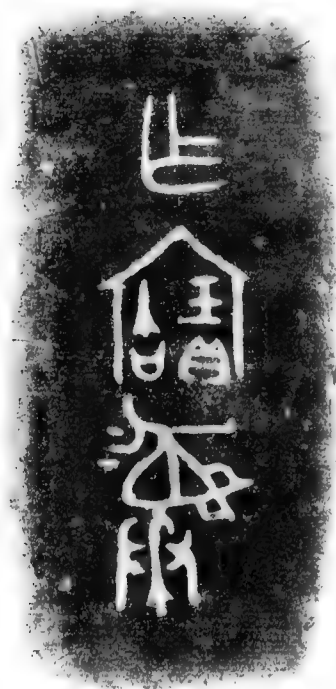 乍寶彝